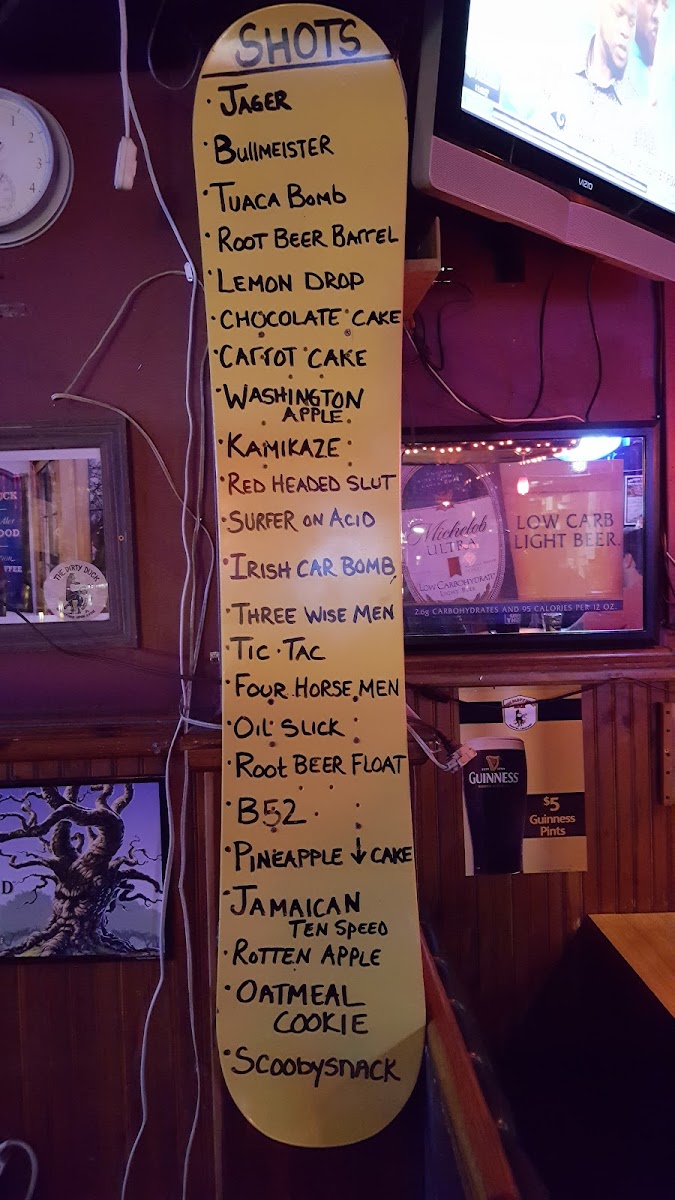 SHOTS
· JAGER
· BullMEISTER
· TUACA BOMB
· ROOT BEER BARREL
· LEMON DROP
· CHOCOLATE CAKE
· CARROT CAKE
· WASHINGTON
APPLE
· KAMIKAZE
· RED HEADED SLUT
· SURFER ON ACID
· IRISH CAR BOMB
· THREE WISE MEN
· TIC TAC
· FOUR HORSE MEN
· OIL SLICK
· Root BEER FLOAT
· B52
· PINEAPPLE ↓ CAKE
· JAMAICAN
TEN SPEED
· ROTTEN APPLE
· OATMEAL
COOKIE
· Scoobysnack
1
2
3
4
VIZIO
Michelob
ULTRA
LOW CARBOHYDRATE
LOW CARB
LIGHT BEER.
2.6g CARBOHYDRATES AND 95 CALORIES PER 12 OZ.
THE DIRTY DUCK
GUINNESS
$5
Guinness
Pints